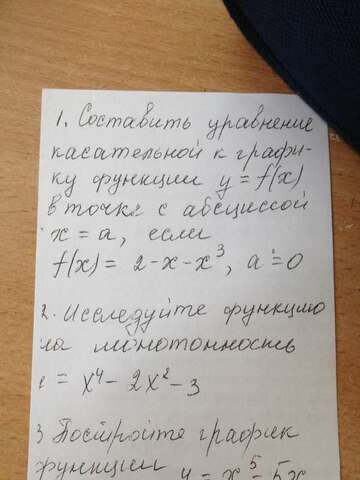 1. Составить уравнение
касательной к графи-
ку функции y = f(x)
в точке с абсциссой
x = a, если
f(x) = 2-x-x³, a=0
2. Исследуйте функцию
на монотонность
= x⁴- 2x²-3
3 Постройте график
функции y = x⁵-5x